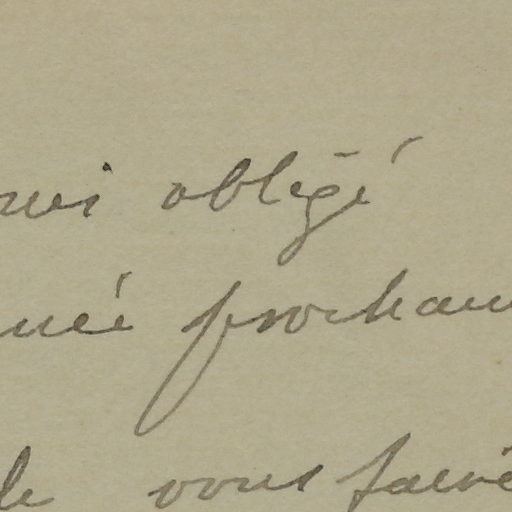 suis obligé
née prochain
de vous faire